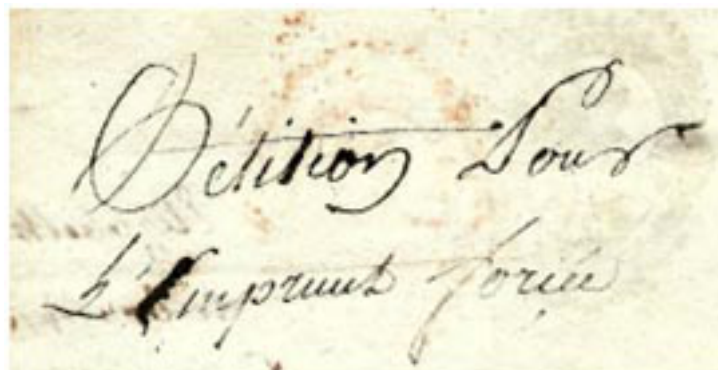 Pétition Pour
L'Emprunt forcée